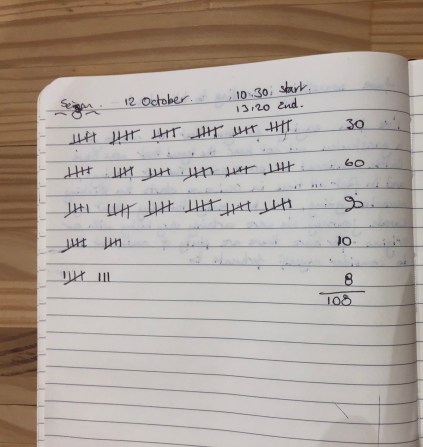 12 October. 10.30. start.
13.20 end.
30
60
90
10
8
108